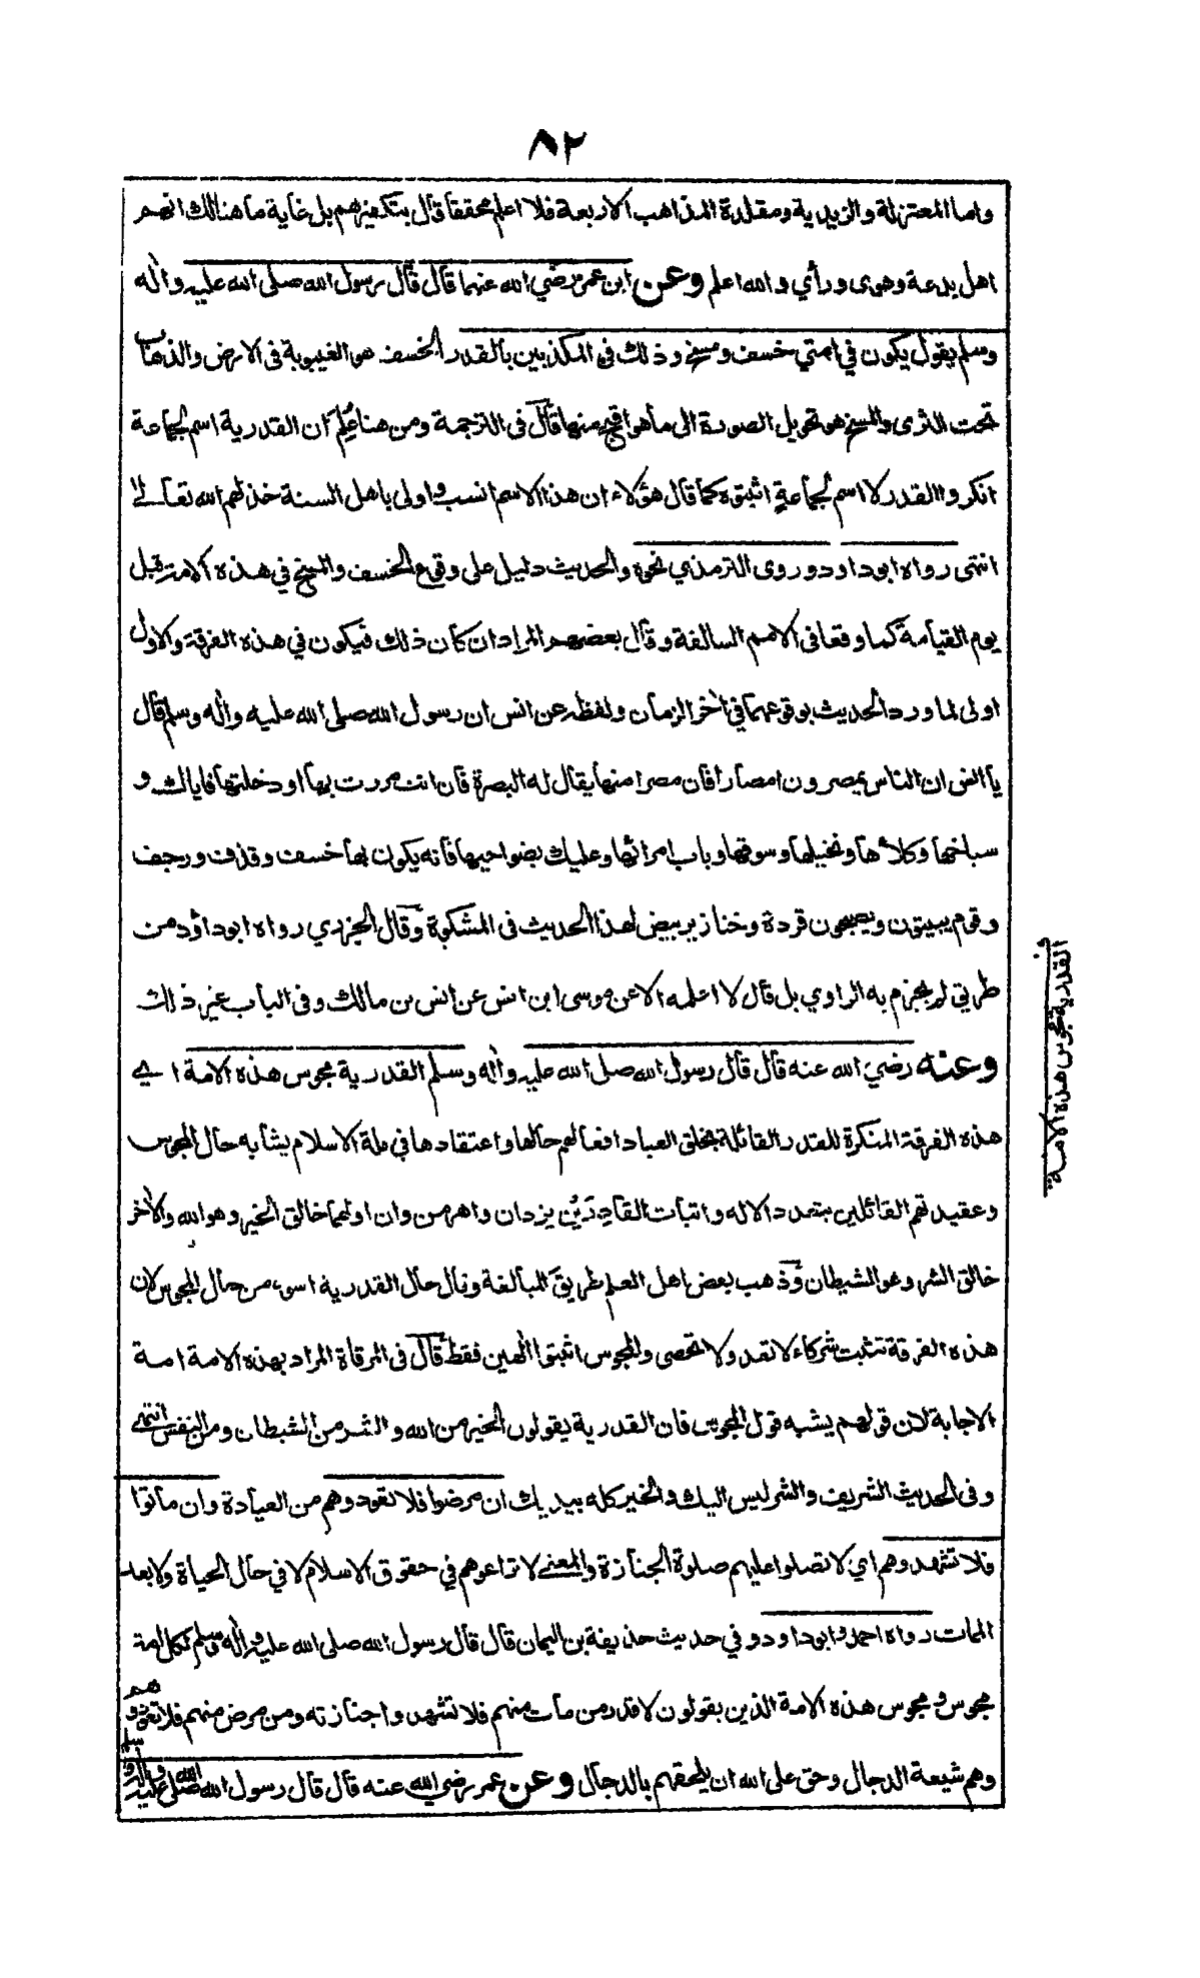 ٨٢
واما المعتزلة والزيدية ومقلدة المذاهب الاربعة فلا اعلم محققا قال بتكفيرهم بل غاية ما هنالك انهم
اهل بدعة وهوى ورأي والله اعلم وعن ابن عمر رضي الله عنهما قال قال رسول الله صلى الله عليه واله
وسلم يقول يكون في امتي خسف ومسخ وذلك في المكذبين بالقدر الخسف هو الغيبوبة في الارض والذهاب
تحت الثرى والمسخ هو تحويل الصورة الى ما هو اقبح منها قال في الترجمة ومن هنا عُلِمَ ان القدرية اسم لجماعة
انكروا القدر لا اسم لجماعةٍ اثبتوه كما قال هؤلاء ان هذا الاسم انسب واولى باهل السنة خذلهم الله تعالى
انتهى رواه ابوداود وروى الترمذي نحوه والحديث دليل على وقوع الخسف والمسخ في هذه الامة قبل
يوم القيامة كما وقعا في الامم السالفة وقال بعضهم المراد ان كان ذلك فيكون في هذه الفرقة والاول
اولى لما ورد الحديث بوقوعهما في اخر الزمان ولفظه عن انس ان رسول الله صلى الله عليه واله وسلم قال
يا انس ان الناس يمصرون امصارا فان مصرا منها يقال له البصرة فان انت مررت بها او دخلتها فاياك و
سباخها وكلأها ونخيلها وسوقها وباب امرائها وعليك بضواحيها فانه يكون بها خسف وقذف ورجف
وقوم يبيتون ويصبحون قردة وخنازير بيض لهذا الحديث في المشكوة وقال الجزري رواه ابوداؤد من
طريق لم يجزم به الراوي بل قال لا اعلمه الا عن موسى ابن انس عن انس بن مالك وفي الباب غير ذلك
وعنه رضي الله عنه قال قال رسول الله صلى الله عليه واله وسلم القدرية مجوس هذه الامة اي
هذه الفرقة المنكرة للقدر القائلة بخلق العباد افعالهم حالها واعتقادها في ملة الاسلام يشابه حال المجوس
وعقيدتهم القائلين بتعدد الاله واثبات القادِرَيْن يزدان واهرمن وان اولهما خالق الخير وهو الله والاخر
خالق الشر وهو الشيطان وذهب بعض اهل العلم طريق المبالغة وقال حال القدرية اسوء من حال المجوس لان
هذه الفرقة تثبت شركاء لا تعد ولا تحصى والمجوس اثبتوا الهين فقط قال في المرقاة المراد بهذه الامة امة
الاجابة لان قولهم يشبه قول المجوس فان القدرية يقولون الخير من الله والشر من الشيطان ومن النفس انتهى
وفي الحديث الشريف والشر ليس اليك والخير كله بيديك ان مرضوا فلا تعودوهم من العيادة وان ماتوا
فلا تشهدوهم اي لا تصلوا عليهم صلوة الجنازة والمعنى لا تراعوهم في حقوق الاسلام لا في حال الحياة ولا بعد
الممات رواه احمد وابوداود وفي حديث حذيفة بن اليمان قال قال رسول الله صلى الله عليه واله وسلم لكل امة
مجوس ومجوس هذه الامة الذين يقولون لا قدر من مات منهم فلا تشهدوا جنازته ومن مرض منهم فلا تعودوهم
وهم شيعة الدجال وحق على الله ان يلحقهم بالدجال وعن عمر رضي الله عنه قال قال رسول الله صلى الله عليه واله وسلم
القدرية مجوس هذه الامة